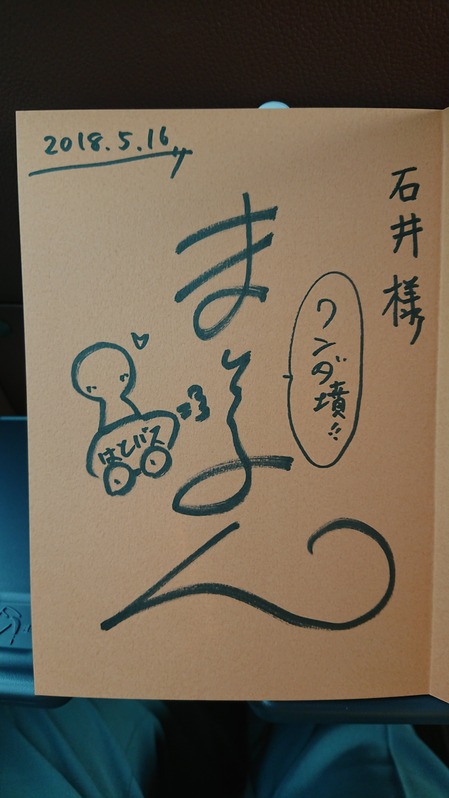 2018.5.16
石井様
ワンダ墳!!
まりこふん
はとバス